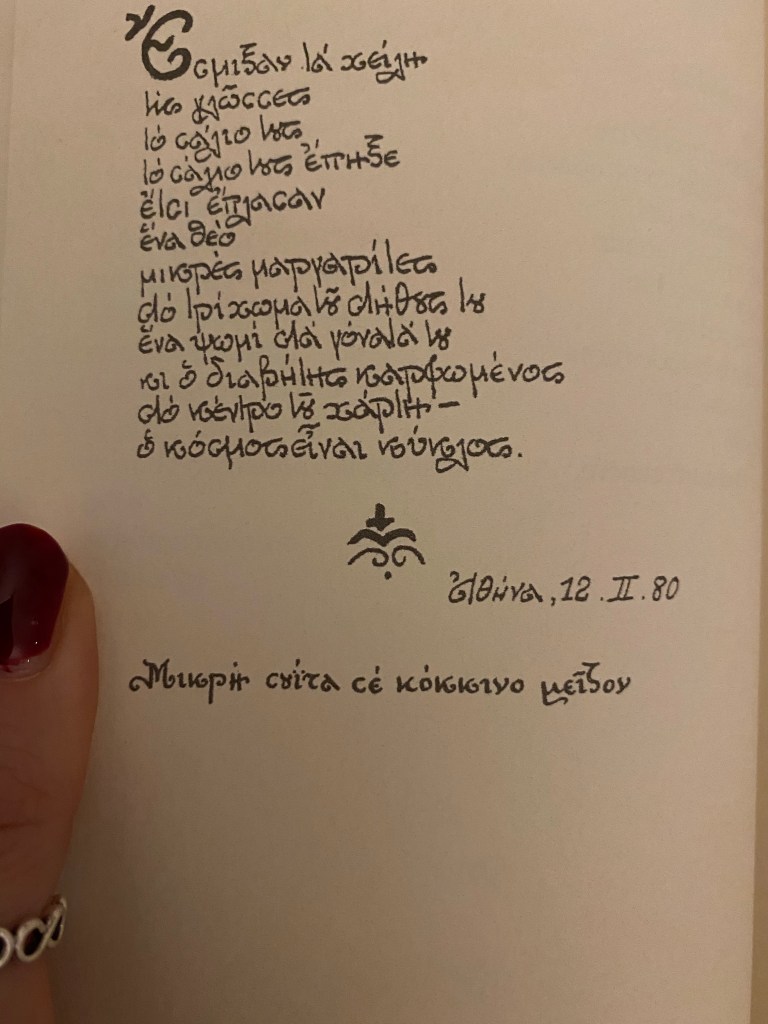 Ἔσμιξαν τά χείλη
τίς γλῶσσες
τό σάλιο τους
τό σάλιο τους ἔπηξε
ἔτσι ἔπλασαν
ἕνα θεό
μικρές μαργαρίτες
στό τρίχωμα τοῦ στήθους του
ἕνα ψωμί στά γόνατά του
κι ὁ διαβήτης καρφωμένος
στό κέντρο τοῦ χάρτη –
ὁ κόσμος εἶναι κύκλος.
Ἀθήνα, 12.II.80
Μικρή σουίτα σέ κόκκινο μεῖζον